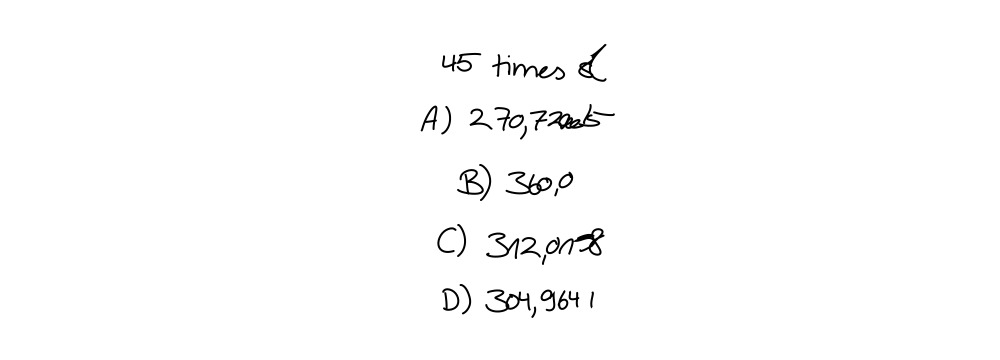 45 times
A) 270,72
B) 360,0
C) 312,0158
D) 304,9641